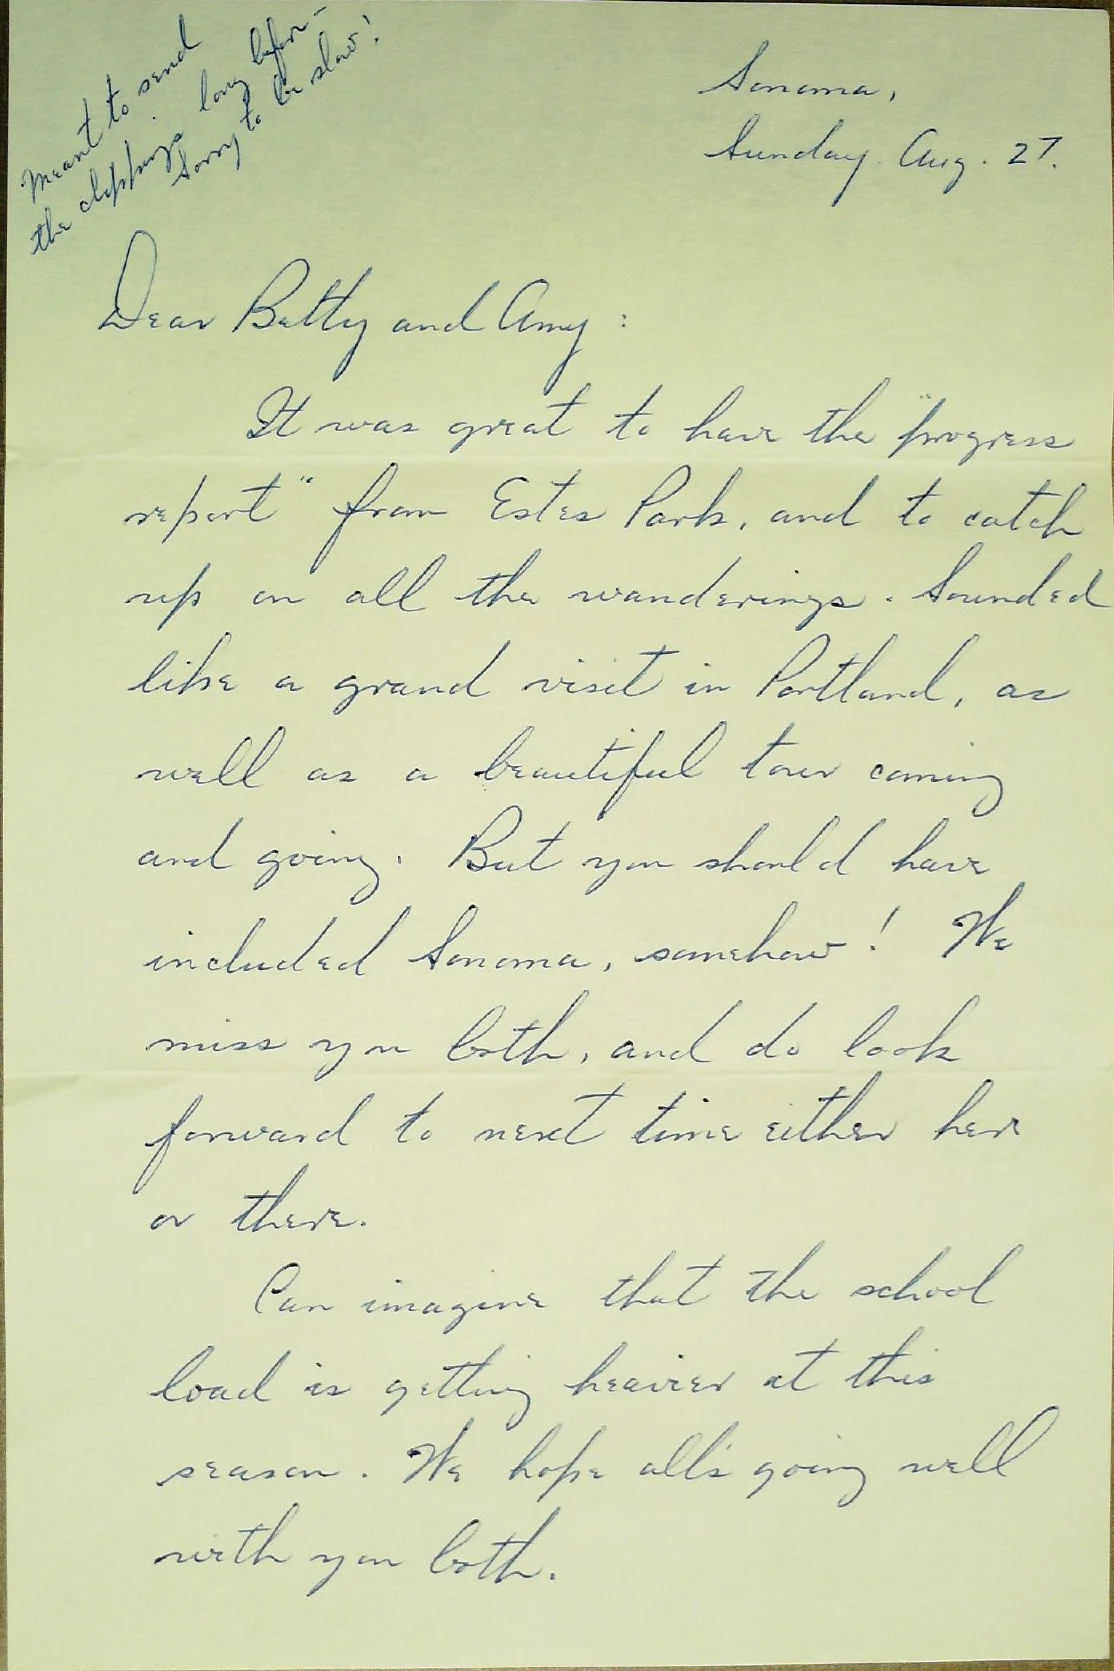 Meant to send
the clippings long before –
Sorry to be slow!
Sonoma,
Sunday. Aug. 27.
Dear Betty and Amy:
It was great to have the "progress
report" from Estes Park, and to catch
up on all the wanderings. Sounded
like a grand visit in Portland, as
well as a beautiful tour coming
and going. But you should have
included Sonoma, somehow! We
miss you both, and do look
forward to next time either here
or there.
Can imagine that the school
load is getting heavier at this
season. We hope all's going well
with you both.